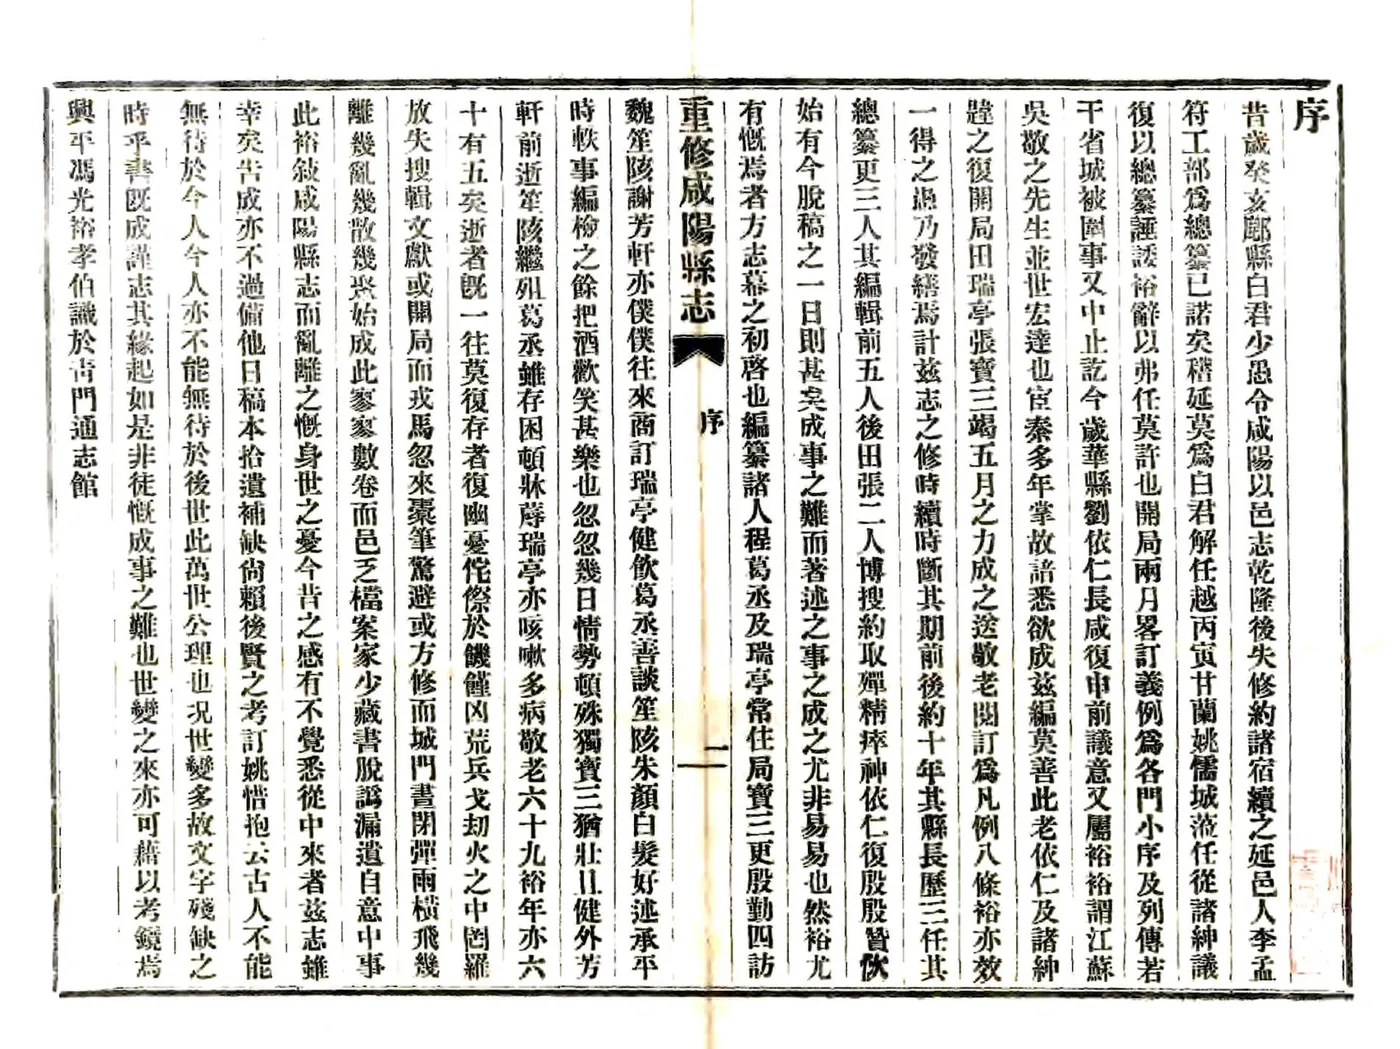 序
昔歲癸亥郿縣白君少愚令咸陽以邑志乾隆後失修約諸宿續之延邑人李孟
符工部爲總纂已諾矣稽延莫爲白君解任越丙寅甘蘭姚儒城蒞任從諸紳議
復以總纂諈諉裕辭以弗任莫許也開局兩月畧訂義例爲各門小序及列傳若
干省城被圍事又中止訖今歲華縣劉依仁長咸復申前議意又屬裕裕謂江蘇
吳敬之先生並世宏達也宦秦多年掌故諳悉欲成茲編莫善此老依仁及諸紳
韙之復開局田瑞亭張寶三竭五月之力成之送敬老閱訂爲凡例八條裕亦效
一得之愚乃發繕焉計茲志之修時續時斷其期前後約十年其縣長歷三任其
總纂更三人其編輯前五人後田張二人博搜約取殫精瘁神依仁復殷殷贊佽
始有今脫稿之一日則甚矣成事之難而著述之事之成之尤非易易也然裕尤
有慨焉者方志幕之初啓也編纂諸人程葛丞及瑞亭常住局寶三更殷勤四訪
重修咸陽縣志
序
一
魏笙陔謝芳軒亦僕僕往來商訂瑞亭健飲葛丞善談笙陔朱顏白髮好述承平
時軼事編檢之餘把酒歡笑甚樂也忽忽幾日情勢頓殊獨寶三猶壯且健外芳
軒前逝笙陔繼殂葛丞雖存困頓牀蓐瑞亭亦咳嗽多病敬老六十九裕年亦六
十有五矣逝者旣一往莫復存者復幽憂侘傺於饑饉凶荒兵戈劫火之中罔羅
放失搜輯文獻或開局而戎馬忽來橐筆驚避或方修而城門晝閉彈雨橫飛幾
離幾亂幾散幾聚始成此寥寥數卷而邑乏檔案家少藏書脫譌漏遺自意中事
此裕敍咸陽縣志而亂離之慨身世之憂今昔之感有不覺悉從中來者茲志雖
幸矣告成亦不過備他日稿本拾遺補缺尙賴後賢之考訂姚惜抱云古人不能
無待於今人今人亦不能無待於後世此萬世公理也況世變多故文字殘缺之
時乎書旣成謹志其緣起如是非徒慨成事之難也世變之來亦可藉以考鏡焉
興平馮光裕孝伯識於青門通志館